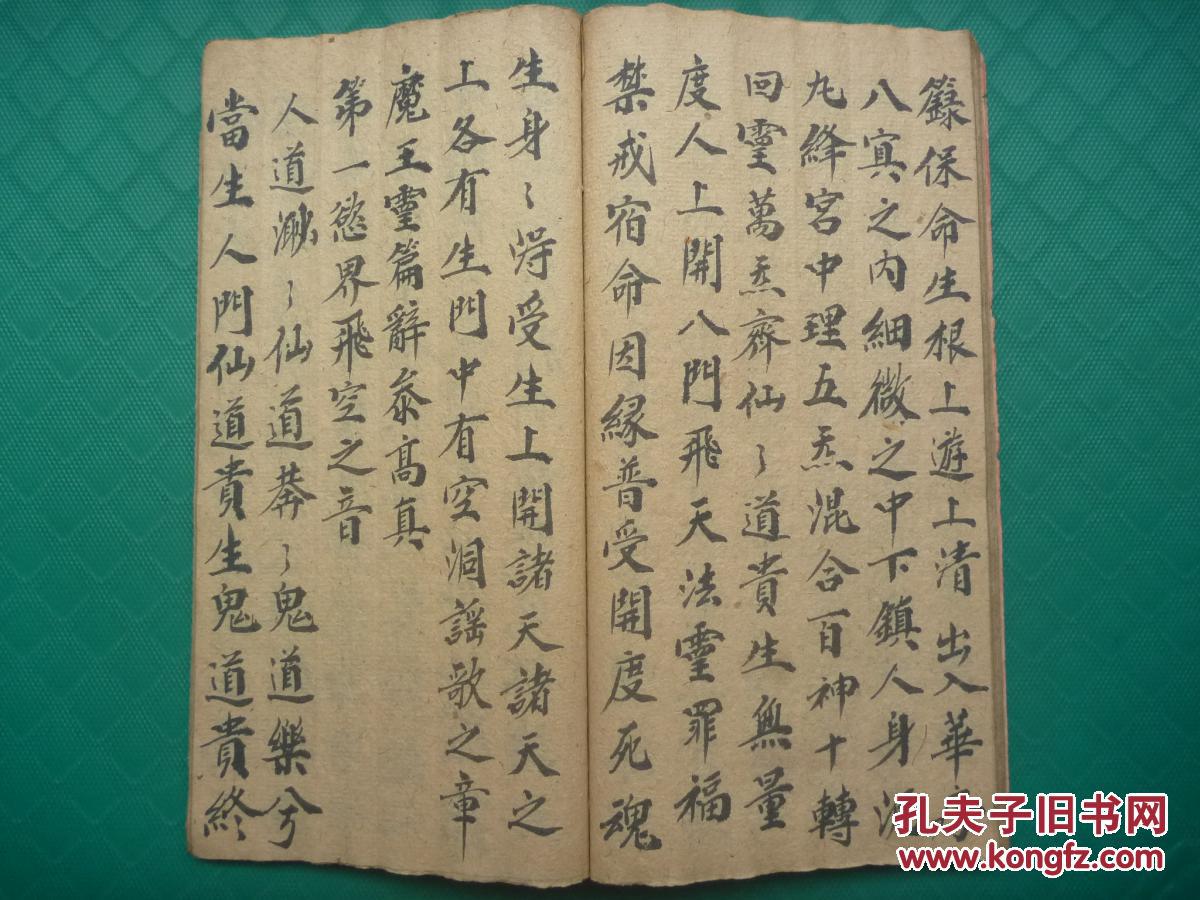 籙保命生根上遊上清出入華房
八㝠之内細微之中下鎮人身泥
丸絳宮中理五炁混合百神十轉
回靈萬炁齊仙〻道貴生無量
度人上開八門飛天法靈罪福
禁戒宿命因緣普受開度死魂
生身〻得受生上開諸天諸天之
上各有生門中有空洞謠歌之章
魔王靈篇辭叅髙真
第一慾界飛空之音
人道渺〻仙道莾〻鬼道樂兮
當生人門仙道貴生鬼道貴終
孔夫子旧书网
www.kongfz.com